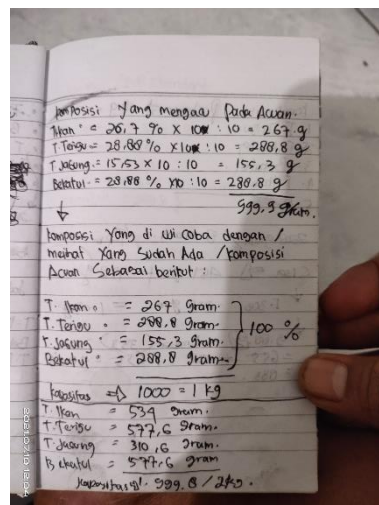 komposisi yang mengacu Pada Acuan.
Ikan = 26,7 % x 10x : 10 = 267 g
T. Terigu = 28.88 % x 10x : 10 = 288,8 g
T. Jagung = 15,53 x 10 : 10 = 155,3 g
Bekatul = 28,88 % x10 : 10 = 288,8 g
999,9 gram.
komposisi Yang di Uji Coba dengan /
melihat Yang Sudah Ada / komposisi
Acuan Sebagai berikut :
T. Ikan = 267 Gram.
T. Terigu = 288,8 Gram.
T. Jagung = 155,3 Gram.
Bekatul = 288,8 Gram
100 %
kapasitas => 1000 = 1 kg
T. Ikan = 534 Gram.
T. Terigu = 577,6 Gram.
T. Jagung = 310,6 Gram.
Bekatul = 577,6 gram
999.8 / 2kg.